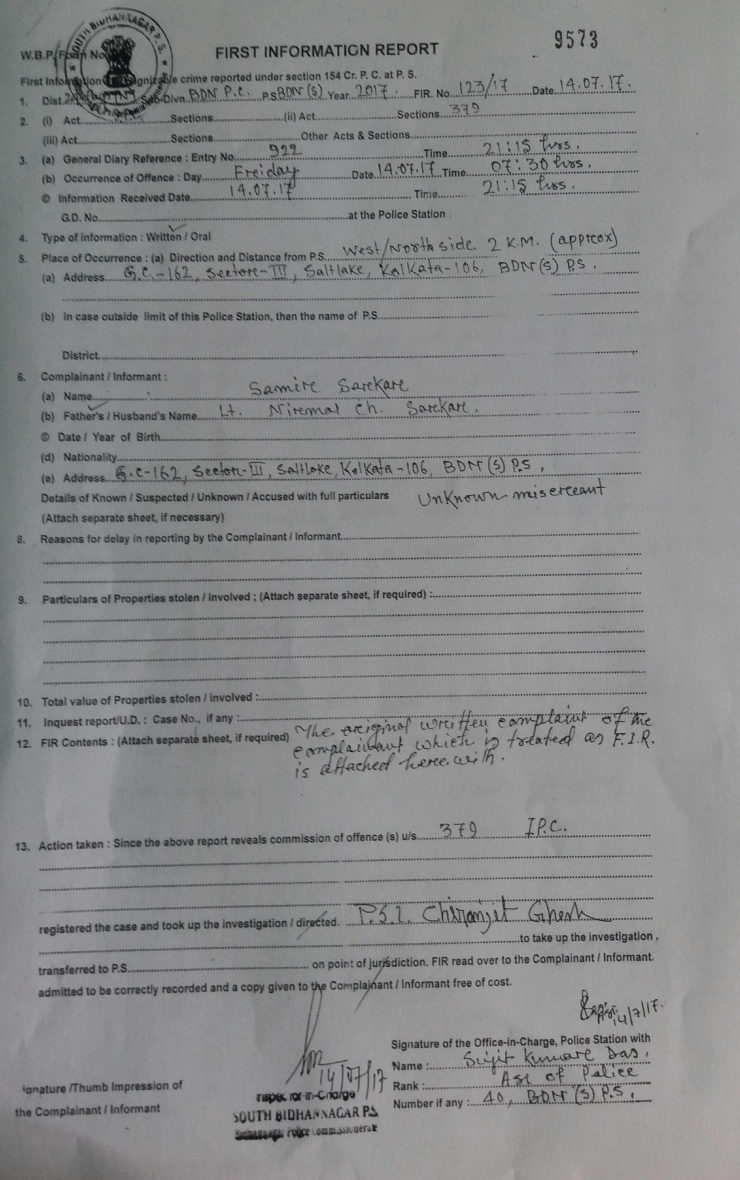 SOUTH BIDHANNAGAR P.S.
9573
W.B.P. Form No
FIRST INFORMATION REPORT
First Information cognizable crime reported under section 154 Cr. P. C. at P. S.
1. Dist. Sub-Divn. BDN P.C. P.S BDN (S) Year 2017. FIR. No. 123/17 Date 14.07.17.
2. (i) Act Sections (ii) Act Sections 379
(iii) Act Sections Other Acts & Sections
3. (a) General Diary Reference : Entry No. 922 Time 21:15 hrs.
(b) Occurrence of Offence : Day Freiday Date 14.07.17 Time 07:30 hrs.
© Information Received Date 14.07.17 Time 21:15 hrs.
G.D. No. at the Police Station :
4. Type of information : Written / Oral
5. Place of Occurrence : (a) Direction and Distance from P.S. West/North side 2 K.M. (approx)
(a) Address G.C.-162, Sector-III, Saltlake, Kolkata-106, BDN (S) P.S.
(b) In case outside limit of this Police Station, then the name of P.S.
District
6. Complainant / Informant :
(a) Name Samir Sarkar
(b) Father's / Husband's Name Lt. Nirmal Ch. Sarkar.
© Date / Year of Birth
(d) Nationality
(e) Address G.C-162, Sector-III, Saltlake, Kolkata-106, BDN (S) P.S,
Details of Known / Suspected / Unknown / Accused with full particulars Unknown miscreant
(Attach separate sheet, if necessary)
8. Reasons for delay in reporting by the Complainant / Informant
9. Particulars of Properties stolen / involved ; (Attach separate sheet, if required) :
10. Total value of Properties stolen / involved :
11. Inquest report/U.D. : Case No., if any :
12. FIR Contents : (Attach separate sheet, if required) The original written complaint of the
complainant which is treated as F.I.R.
is attached here with.
13. Action taken : Since the above report reveals commission of offence (s) u/s. 379 I.P.C.
registered the case and took up the investigation / directed. P.S.I. Chiranjit Ghosh
to take up the investigation ,
transferred to P.S. on point of jurisdiction. FIR read over to the Complainant / Informant.
admitted to be correctly recorded and a copy given to the Complainant / Informant free of cost.
14/7/17.
Signature of the Office-in-Charge, Police Station with
14/07/17
Name : Sujit Kumar Das,
Rank : ASI of Police
Number if any : 40, BDN (S) P.S,
ignature /Thumb Impression of
the Complainant / Informant
Inspector-in-Charge
SOUTH BIDHANNAGAR P.S
Bidhannagar Police Commissionerate